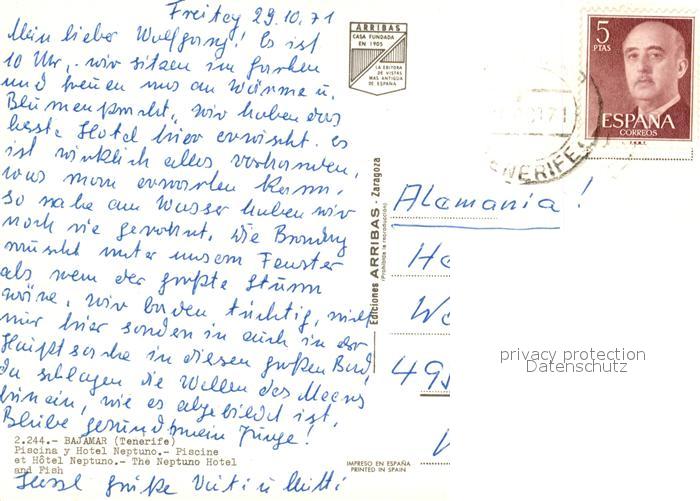 Freitag 29.10.71
Mein lieber Wolfgang! Es ist
10 Uhr, wir sitzen im Garten
und freuen uns an Wärme u.
Blumenpracht, wir haben das
beste Hotel hier erwischt. es
ist wirklich alles vorhanden,
was man erwarten kann,
so nahe am Wasser haben wir
noch nie gewohnt, die Brandung
rauscht unter unserm Fenster
als wenn der größte Sturm
wäre, wir baden tüchtig, nicht
nur hier sondern in auch in der
Hauptsache in diesem großen Bad,
da schlagen die Wellen des Meeres
hinein, wie es abgebildet ist,
Bleibe gesund mein Junge!
2.244.- BAJAMAR (Tenerife)
Piscina y Hotel Neptuno.- Piscine
et Hôtel Neptuno.- The Neptuno Hotel
and Fish
Herzl Grüße Vati u Mutti
ARRIBAS
CASA FUNDADA
EN 1905
LA EDITORA
DE VISTAS
MAS ANTIGUA
DE ESPAÑA
Ediciones ARRIBAS - Zaragoza
(Prohibida la reproducción)
IMPRESO EN ESPAÑA
PRINTED IN SPAIN
5
PTAS
ESPAÑA
CORREOS
F.N.M.T.
TENERIFE
Alemania!
He
Wo
495
privacy protection
Datenschutz